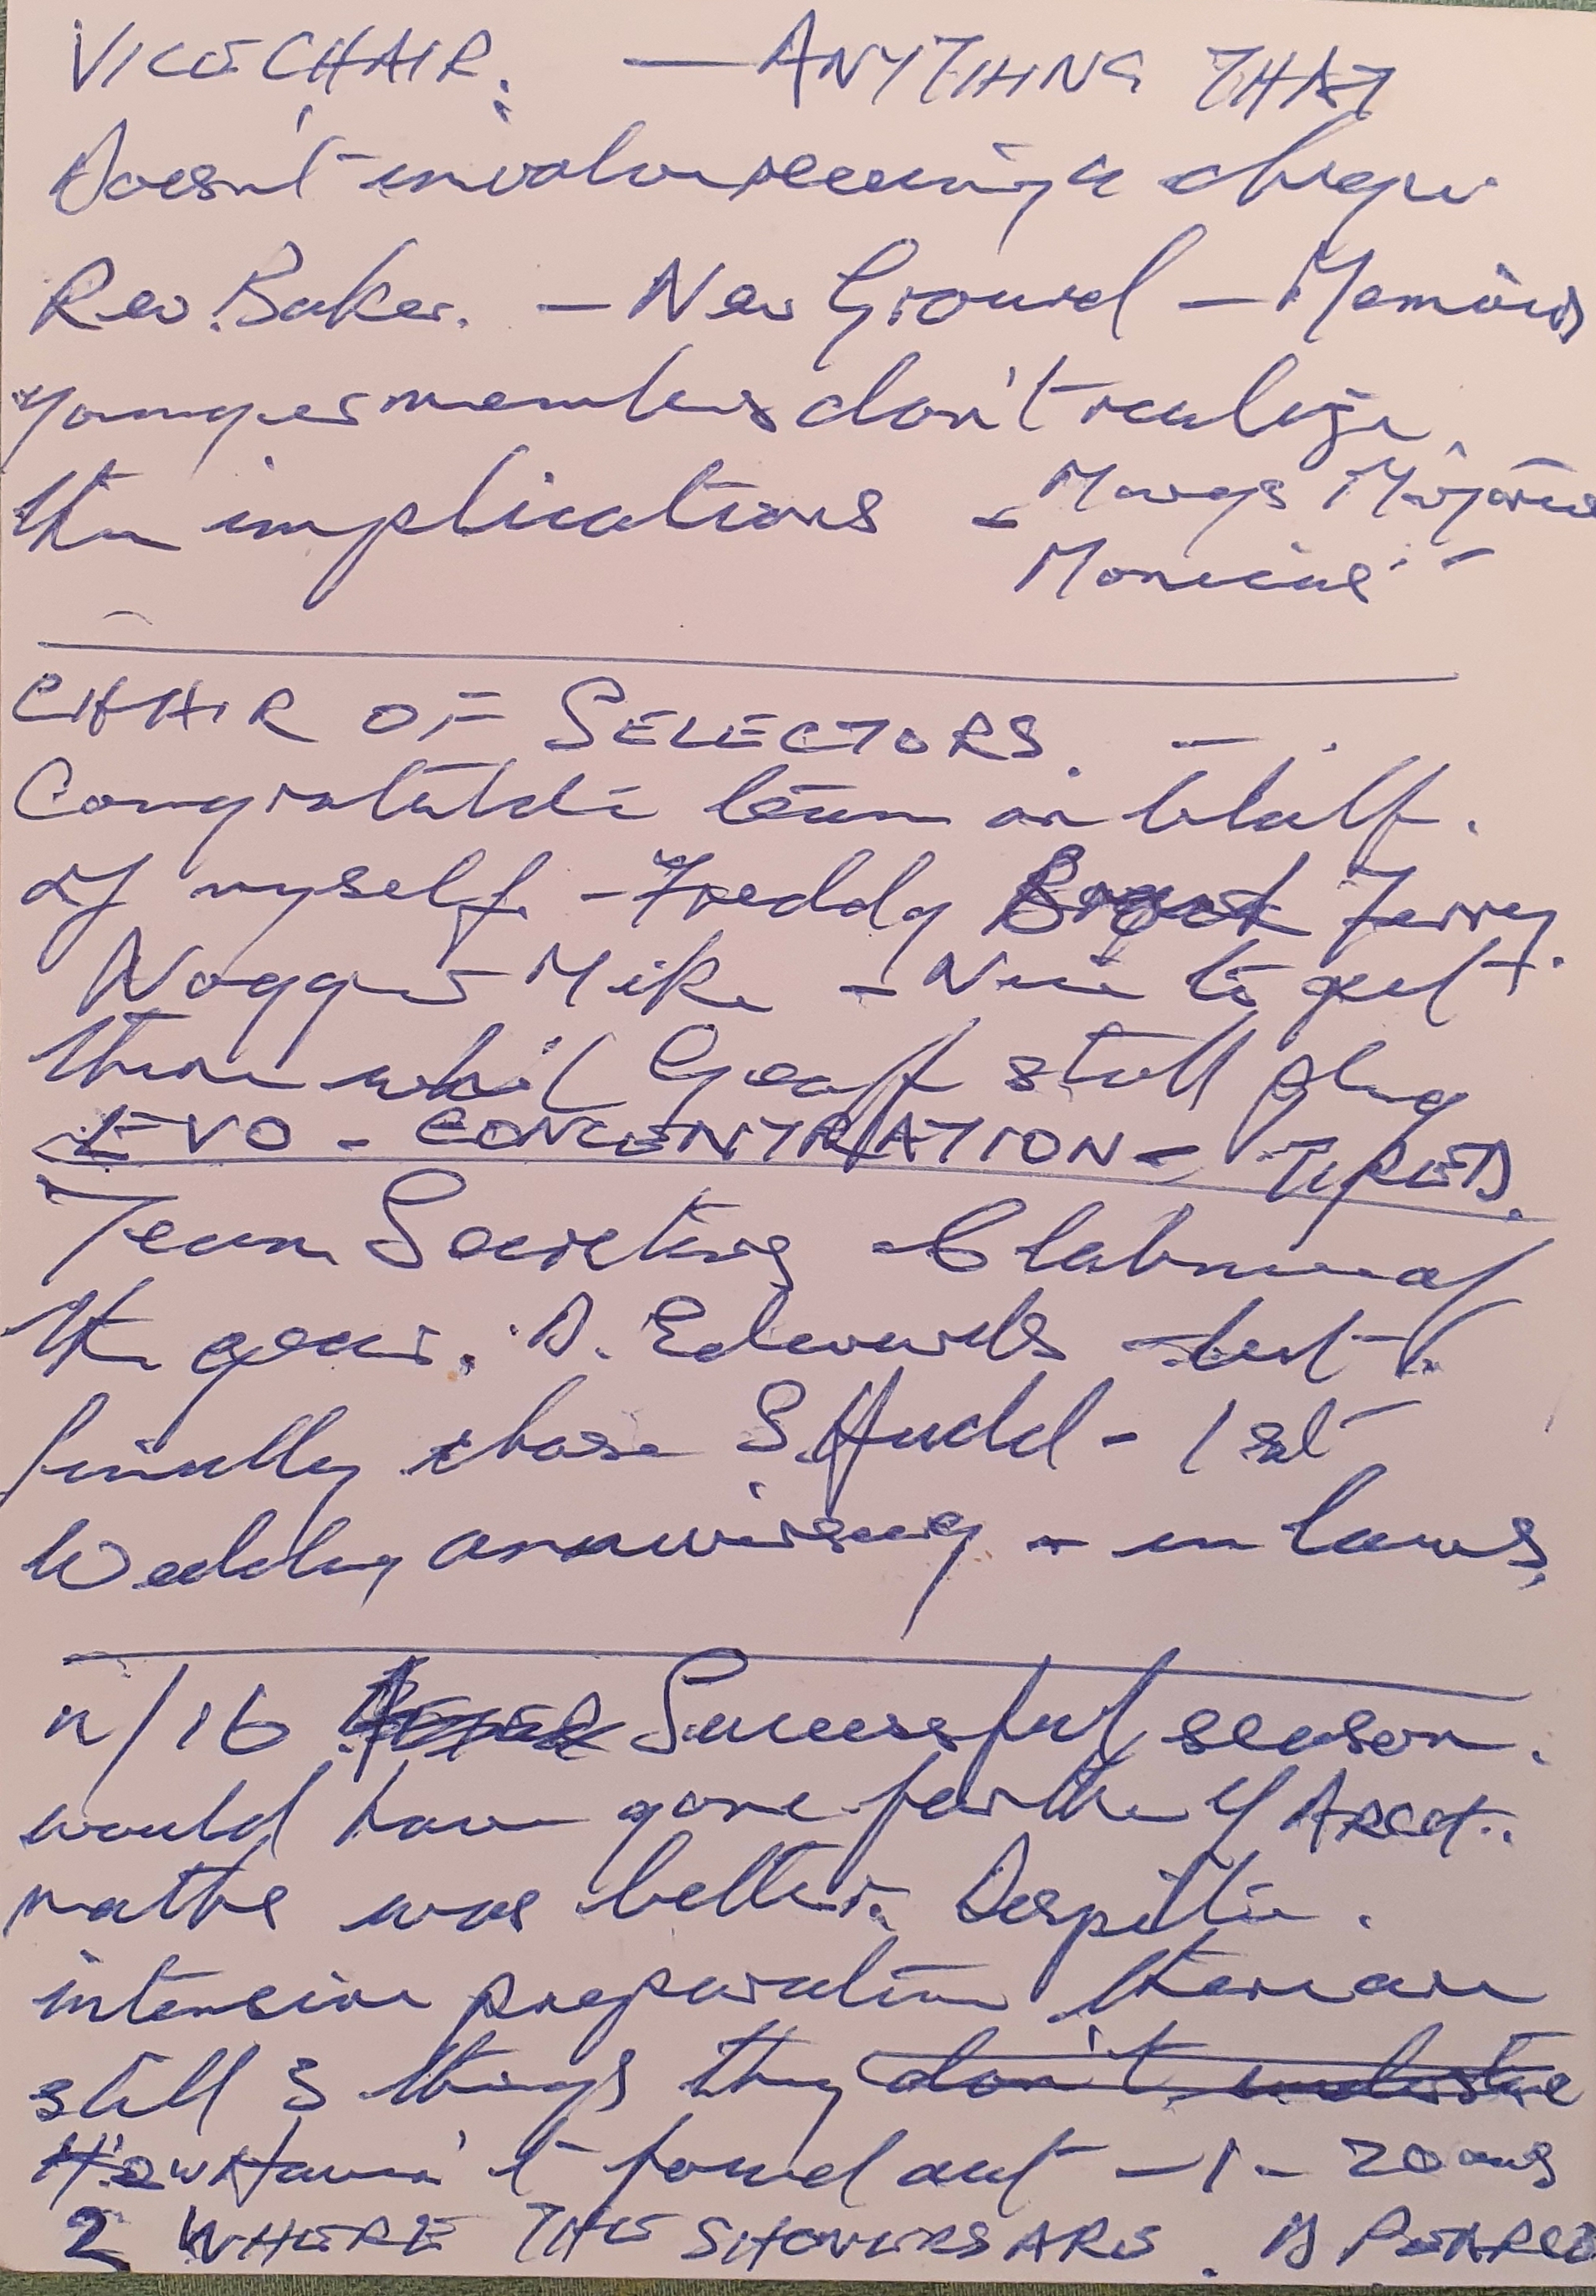 VICE CHAIR: — ANYTHING THAT
Doesn't involve seeing a cheque
Rev. Baker. — New Ground — Memoirs
younger members don't realise.
the implications - Margs Marjories
Monicas -
CHAIR OF SELECTORS. -
Congratulate team on behalf.
of myself - Freddy Terry.
Noggs Mike - Nice to get
there whil Geoff still play
EVO - CONCENTRATION - TIRED.
Team Secretary Clubman of
the year. D. Edwards - but
finally chose S. Hudd - 1st
Wedding anniversary - in laws,
u/16 Successful season.
would have gone further if
maths was better. Despite.
intensive preparation there are
still 3 things they don't
Haven't found out - 1 - 20 overs
2 WHERE THE SHOWERS ARE.